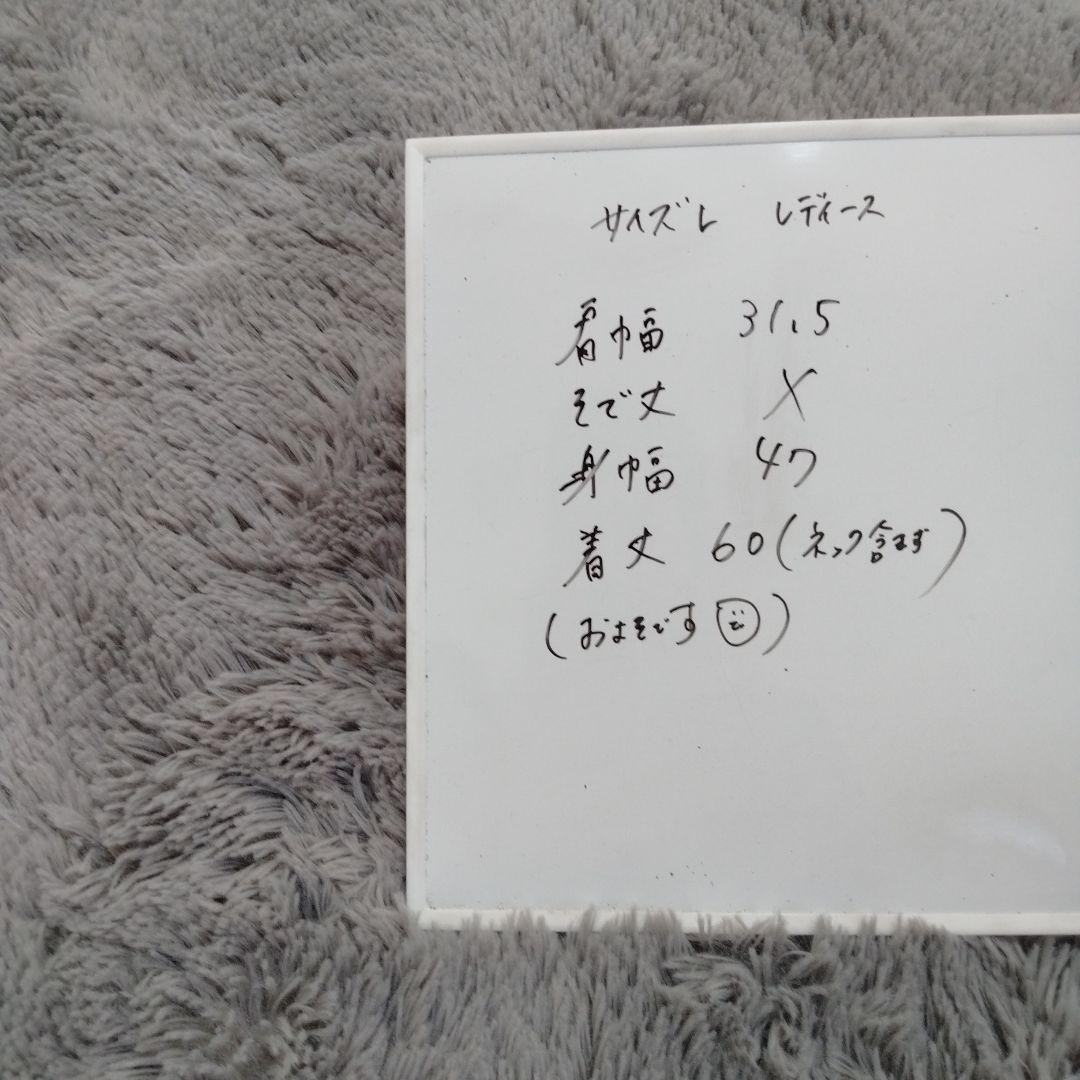 サイズL レディース
肩幅 31.5
そで丈 X
身幅 47
着丈 60(ネック含まず)
(およそです)